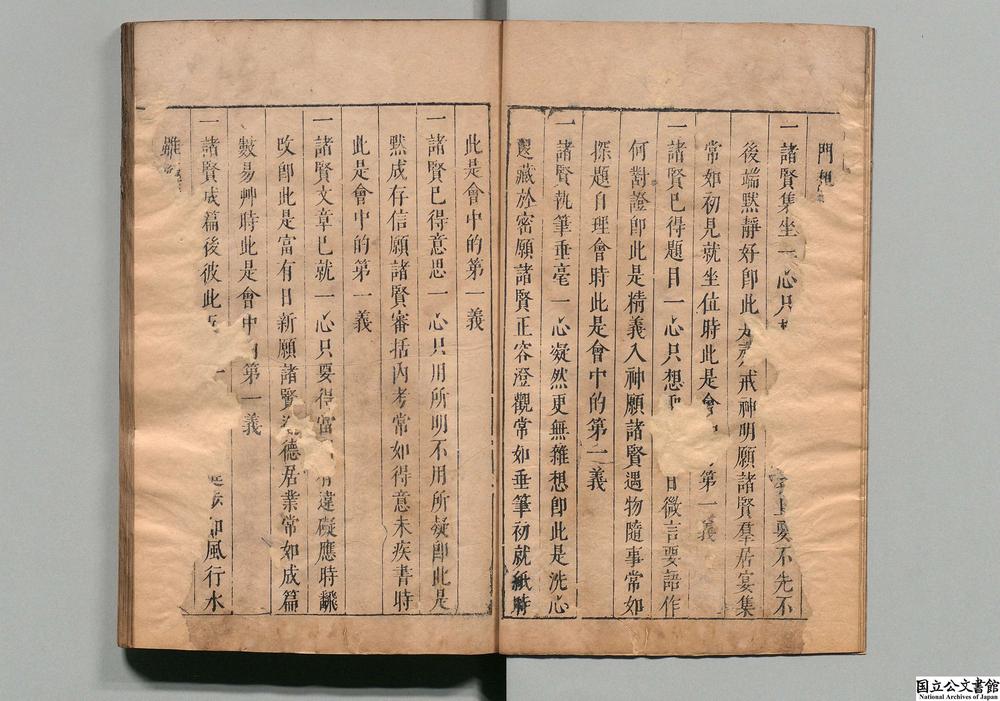 門
一諸賢集坐一心只 要不先不
後端默靜好卽此 戒神明願諸賢羣居宴集
常如初見就坐位時此是會 第一義
一諸賢已得題目一心只想 微言要語作
何對證卽此是精義入神願諸賢遇物隨事常如
探題自理會時此是會中的第一義
一諸賢執筆垂毫一心凝然更無雜想卽此是洗心
退藏於密願諸賢正容澄觀常如垂筆初就紙時
此是會中的第一義
一諸賢已得意思一心只用所明不用所凝卽此是
默成存信願諸賢審括內考常如得意未疾書時
此是會中的第一義
一諸賢文章已就一心只要得富 有違礙應時飜
改卽此是富有日新願諸賢 德居業常如成篇
數易艸時此是會中 第一義
一諸賢成篇後彼此 如風行水
雖
国立公文書館
National Archives of Japan